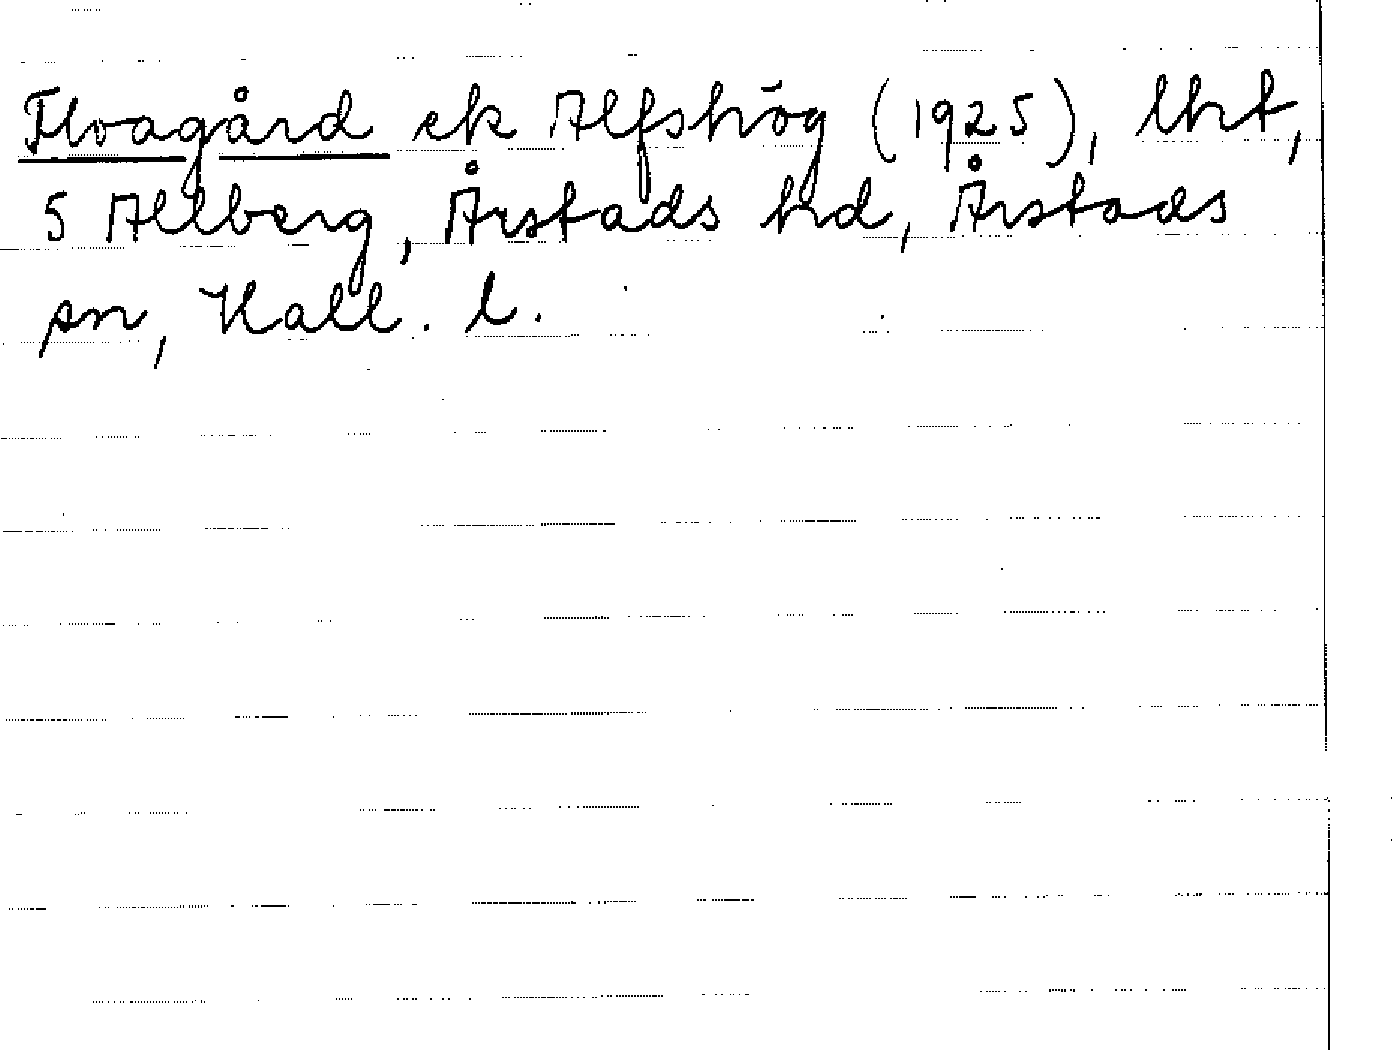 Floagård ek Alfshög (1925), lht,
5 Allberg, Årstads hd, Årstads
sn, Hall. l.